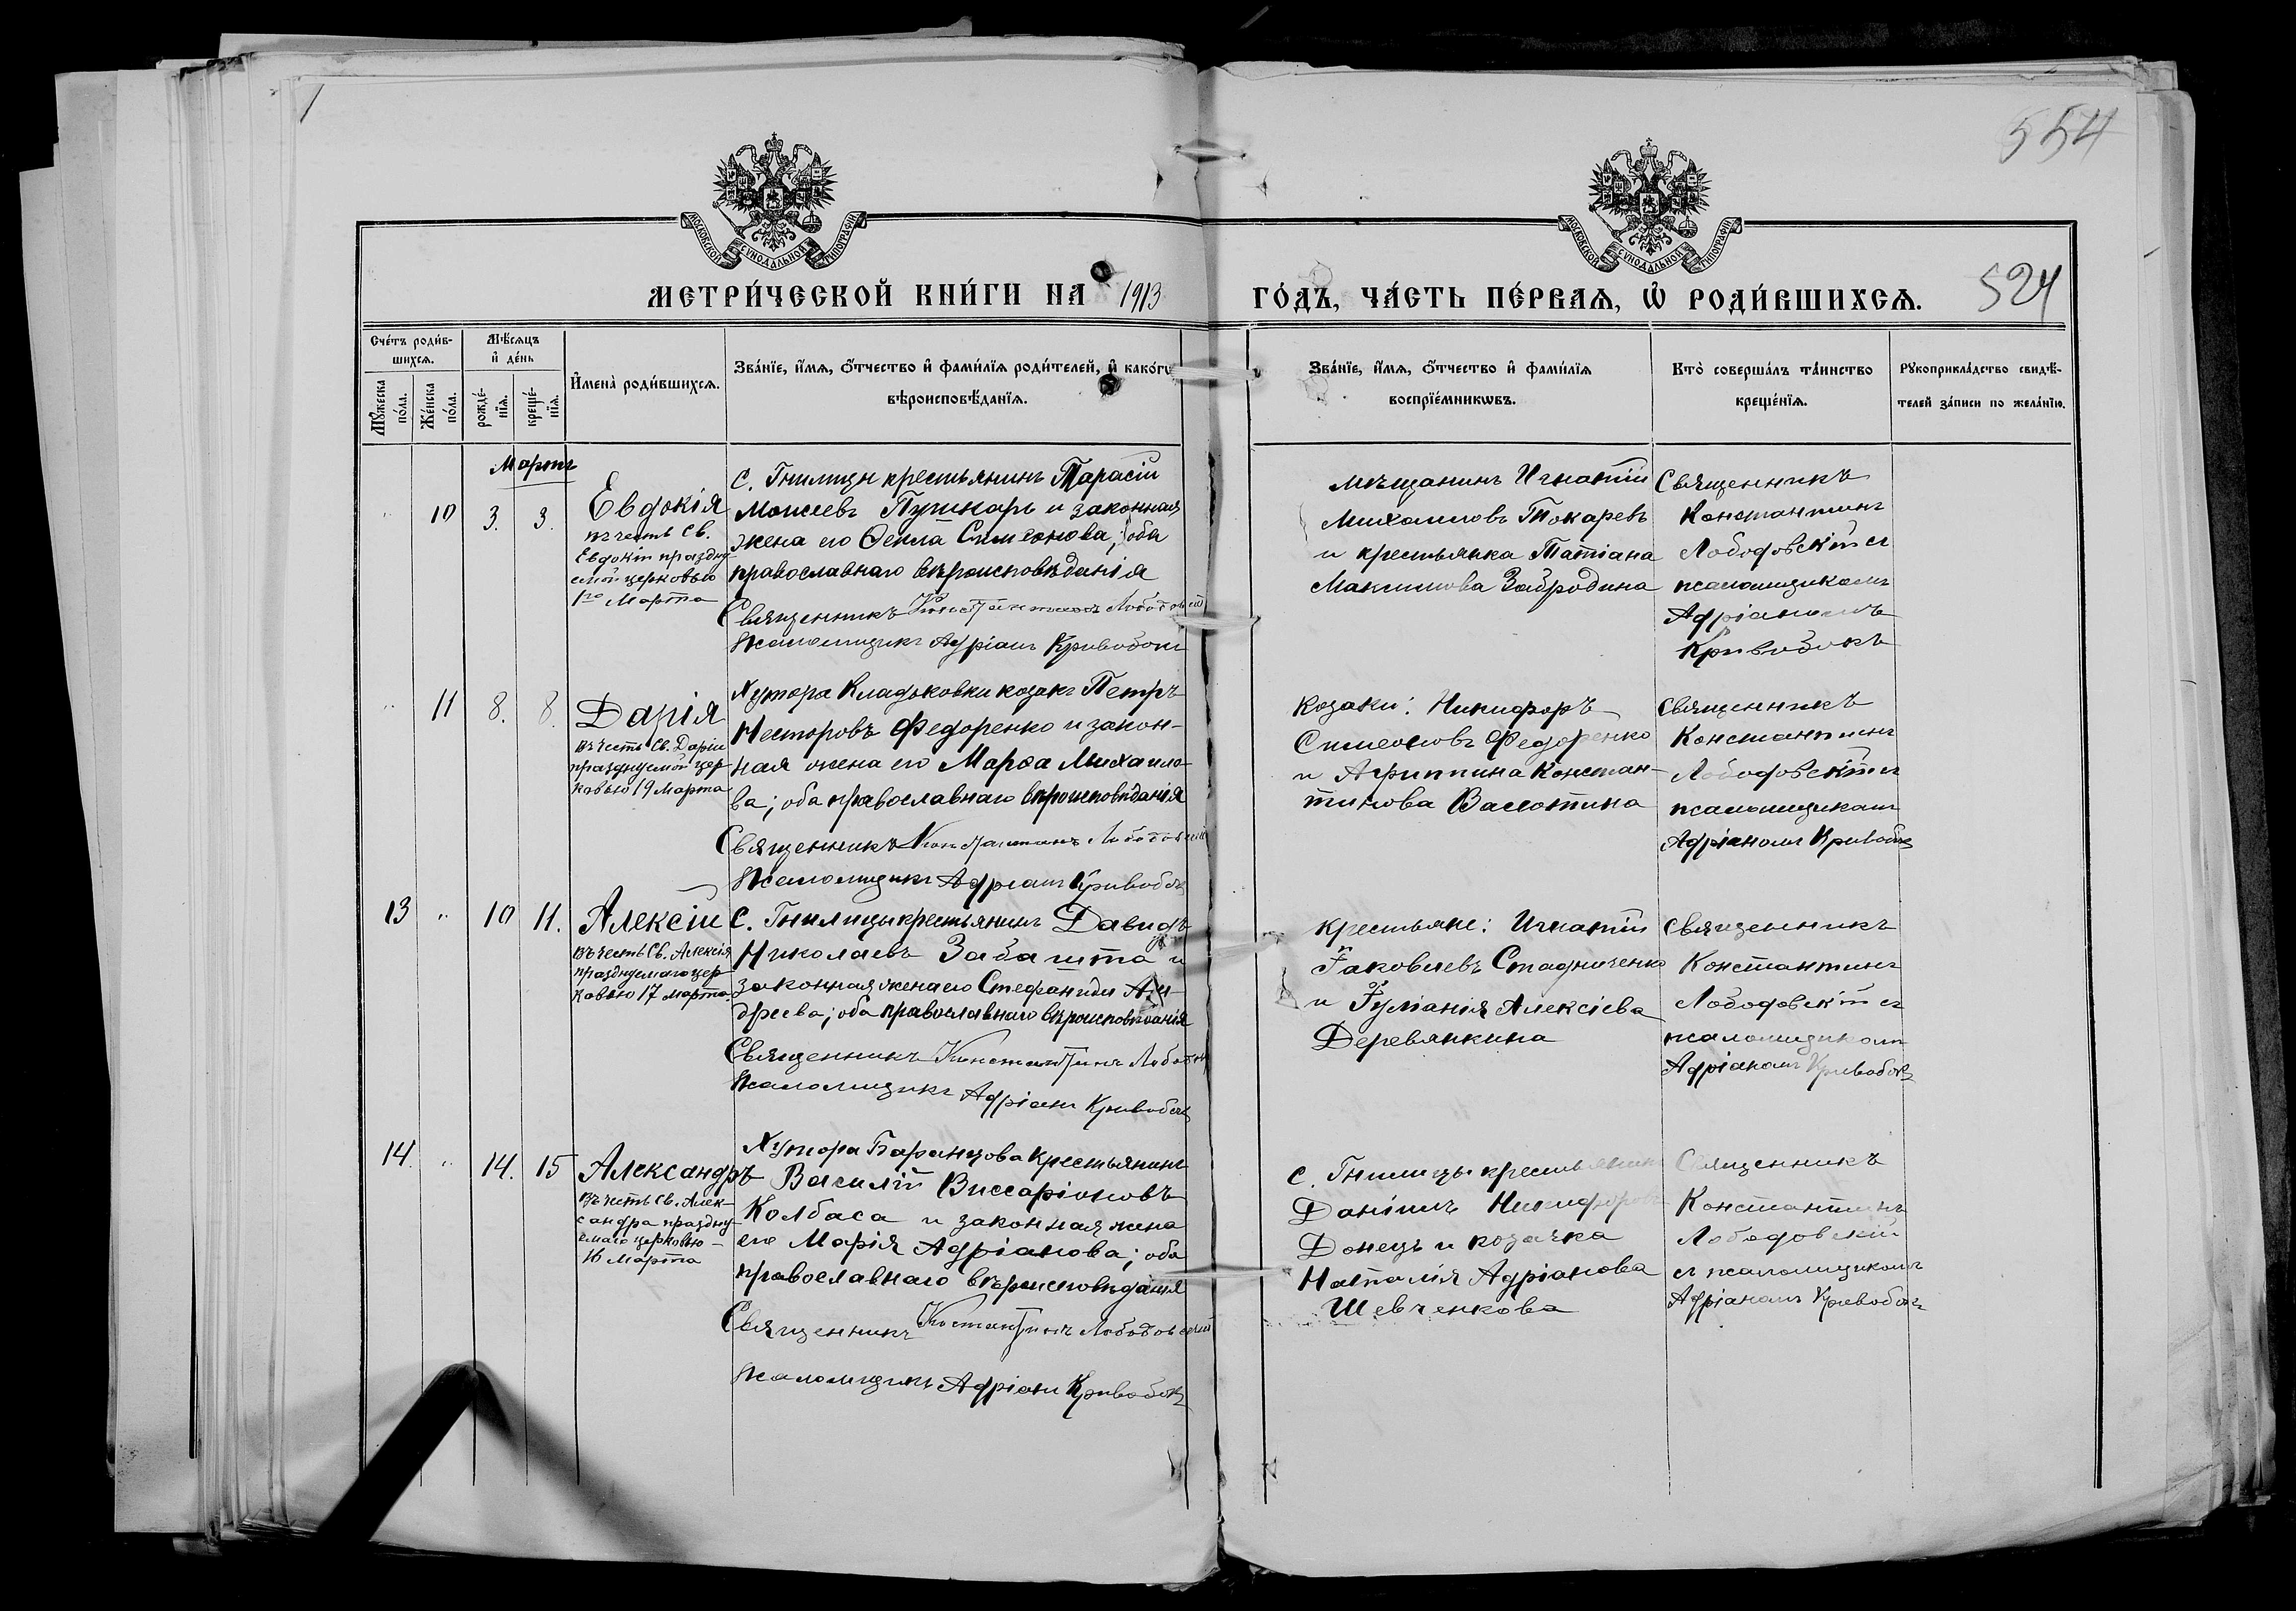 554
524
МОСКОВСКОЙ СѴНОДАЛЬНОЙ ТИПОГРАФІИ
МОСКОВСКОЙ СѴНОДАЛЬНОЙ ТИПОГРАФІИ
МЕТРИ́ЧЕСКОЙ КНИ́ГИ НА 1913 ГО́ДЪ, ЧА́СТЬ ПЕ́РВАѦ, Ѡ҆ РОДИ́ВШИХСѦ.
Сче́тъ роди́в-
шихсѧ.
Мѣ́сѧцъ
и҆ де́нь
Мꙋ́жеска
по́ла.
Же́нска
по́ла.
рожде́-
нїѧ.
креще́-
нїѧ.
И҆мена̀ роди́вшихсѧ.
Зва́нїе, и҆́мѧ, ѻ҆́тчество и҆ фами́лїѧ роди́телей, и҆ како́гѡ
вѣроисповѣ́данїѧ.
Зва́нїе, и҆́мѧ, ѻ҆́тчество и҆ фами́лїѧ
воспрїе́мникѡвъ.
Кто̀ соверша́лъ та́инство
креще́нїѧ.
Рꙋкоприкла́дство свидѣ́-
телей за́писи по жела́нїю.
Мартъ
10 3. 3.
Евдокія
въ честь Св.
Евдокіи праздну-
емой церковью
1го Марта
С. Гнилицы крестьянинъ Тарасій
Моисеевъ Пушкарь и законная
жена его Ѳекла Симеонова; оба
православнаго вѣроисповѣданія
Священникъ Константинъ Лободовскій
Псаломщикъ Адріанъ Кривобокъ
мѣщанинъ Игнатій
Михаиловъ Токаревъ
и крестьянка Татіана
Максимова Забродина
Священникъ
Константинъ
Лободовскій съ
псаломщикомъ
Адріаномъ
Кривобокъ
11 8. 8.
Дарія
въ честь Св. Даріи
празднуемой цер-
ковью 19 Марта
Хутора Кладьковки козакъ Петръ
Несторовъ Федоренко и закон-
ная жена его Марѳа Михаило-
ва; оба православнаго вѣроисповѣданія
Священникъ Константинъ Лободовскій
Псаломщикъ Адріанъ Кривобокъ
Козаки: Никифоръ
Симеоновъ Федоренко
и Агриппина Констан-
тинова
Священникъ
Константинъ
Лободовскій съ
псаломщикомъ
Адріаномъ Кривобокъ
13 " 10 11.
Алексій
въ честь Св. Алексія
празднуемаго цер-
ковью 17 марта
С. Гнилицы крестьянинъ Давидъ
Николаевъ Забашта и
законная жена его Стефанида Ан-
дреева; оба православнаго вѣроисповѣданія
Священникъ Константинъ Лободовскій
Псаломщикъ Адріанъ Кривобокъ
крестьяне: Игнатій
Іаковлевъ Стадниченко
и Іуліанія Алексіева
Деревянкина
Священникъ
Константинъ
Лободовскій съ
псаломщикомъ
Адріаномъ Кривобокъ
14. " 14. 15
Александръ
въ честь Св. Алек-
сандра праздну-
емаго церковью
Марта
Хутора Баранцова крестьянинъ
Василій Виссаріоновъ
Колбаса и законная жена
его Марія Адріанова; оба
православнаго вѣроисповѣданія
Священникъ Константинъ Лободовскій
Псаломщикъ Адріанъ Кривобокъ
с. Гнилицы крестьянинъ
Даніилъ Никифоровъ
Донецъ и козачка
Наталія Адріанова
Шевченкова
Священникъ
Константинъ
Лободовскій
съ псаломщикомъ
Адріаномъ Кривобокъ